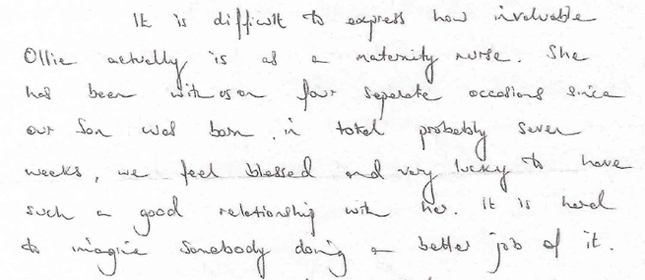 It is difficult to express how invaluable
Ollie actually is as a maternity nurse. She
has been with us on four separate occasions since
our son was born, in total probably seven
weeks, we feel blessed and very lucky to have
such a good relationship with her. It is hard
to imagine somebody doing a better job of it.